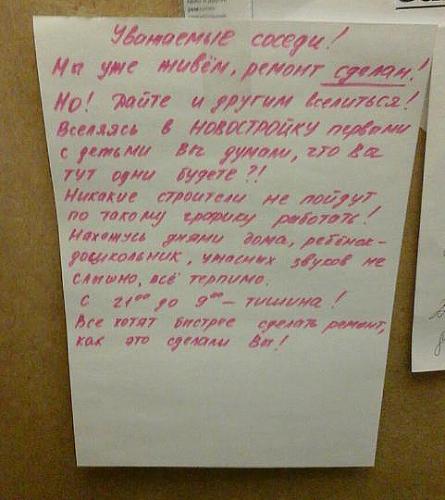 Уважаемые соседи!
Мы уже живём, ремонт сделан!
Но! Дайте и другим вселиться!
Вселяясь в НОВОСТРОЙКУ первыми
с детьми Вы думали, что Вы
тут одни будете?!
Никакие строители не пойдут
по такому графику работать!
Нахожусь днями дома, ребёнок-
дошкольник, ужасных звуков не
слышно, всё терпимо.
С 21⁰⁰ до 9⁰⁰ – тишина!
Все хотят быстрее сделать ремонт,
как это сделали Вы!